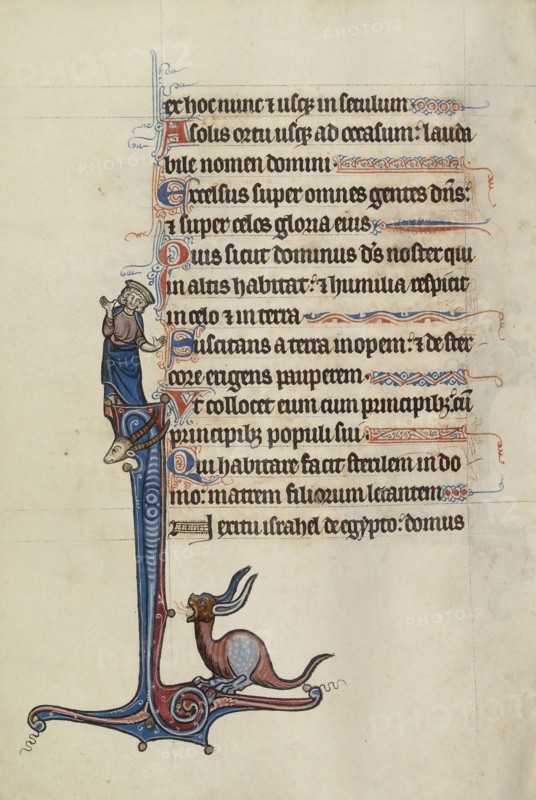 ex hoc nunc ⁊ usq; in seculum
A solis ortu usq; ad occasum: lauda
bile nomen domini.
Excelsus super omnes gentes dñs:
⁊ super celos gloria eius
Quis sicut dominus ds noster qui
in altis habitat: ⁊ humilia respicit
in celo ⁊ in terra
Suscitans a terra inopem: ⁊ de ster
core erigens pauperem.
Vt collocet eum cum principib; cū
principib; populi sui.
Qui habitare facit sterilem in do
mo: matrem filiorum letantem
I exitu israhel de egypto: domus
PHOTO12